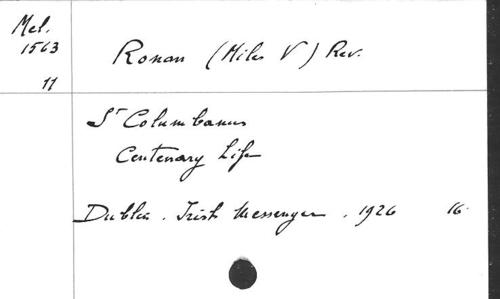 Mel.
1563
11
Ronan (Miles V) Rev.
St Columbanus
Centenary Life
Dublin. Irish Messenger. 1926 16.